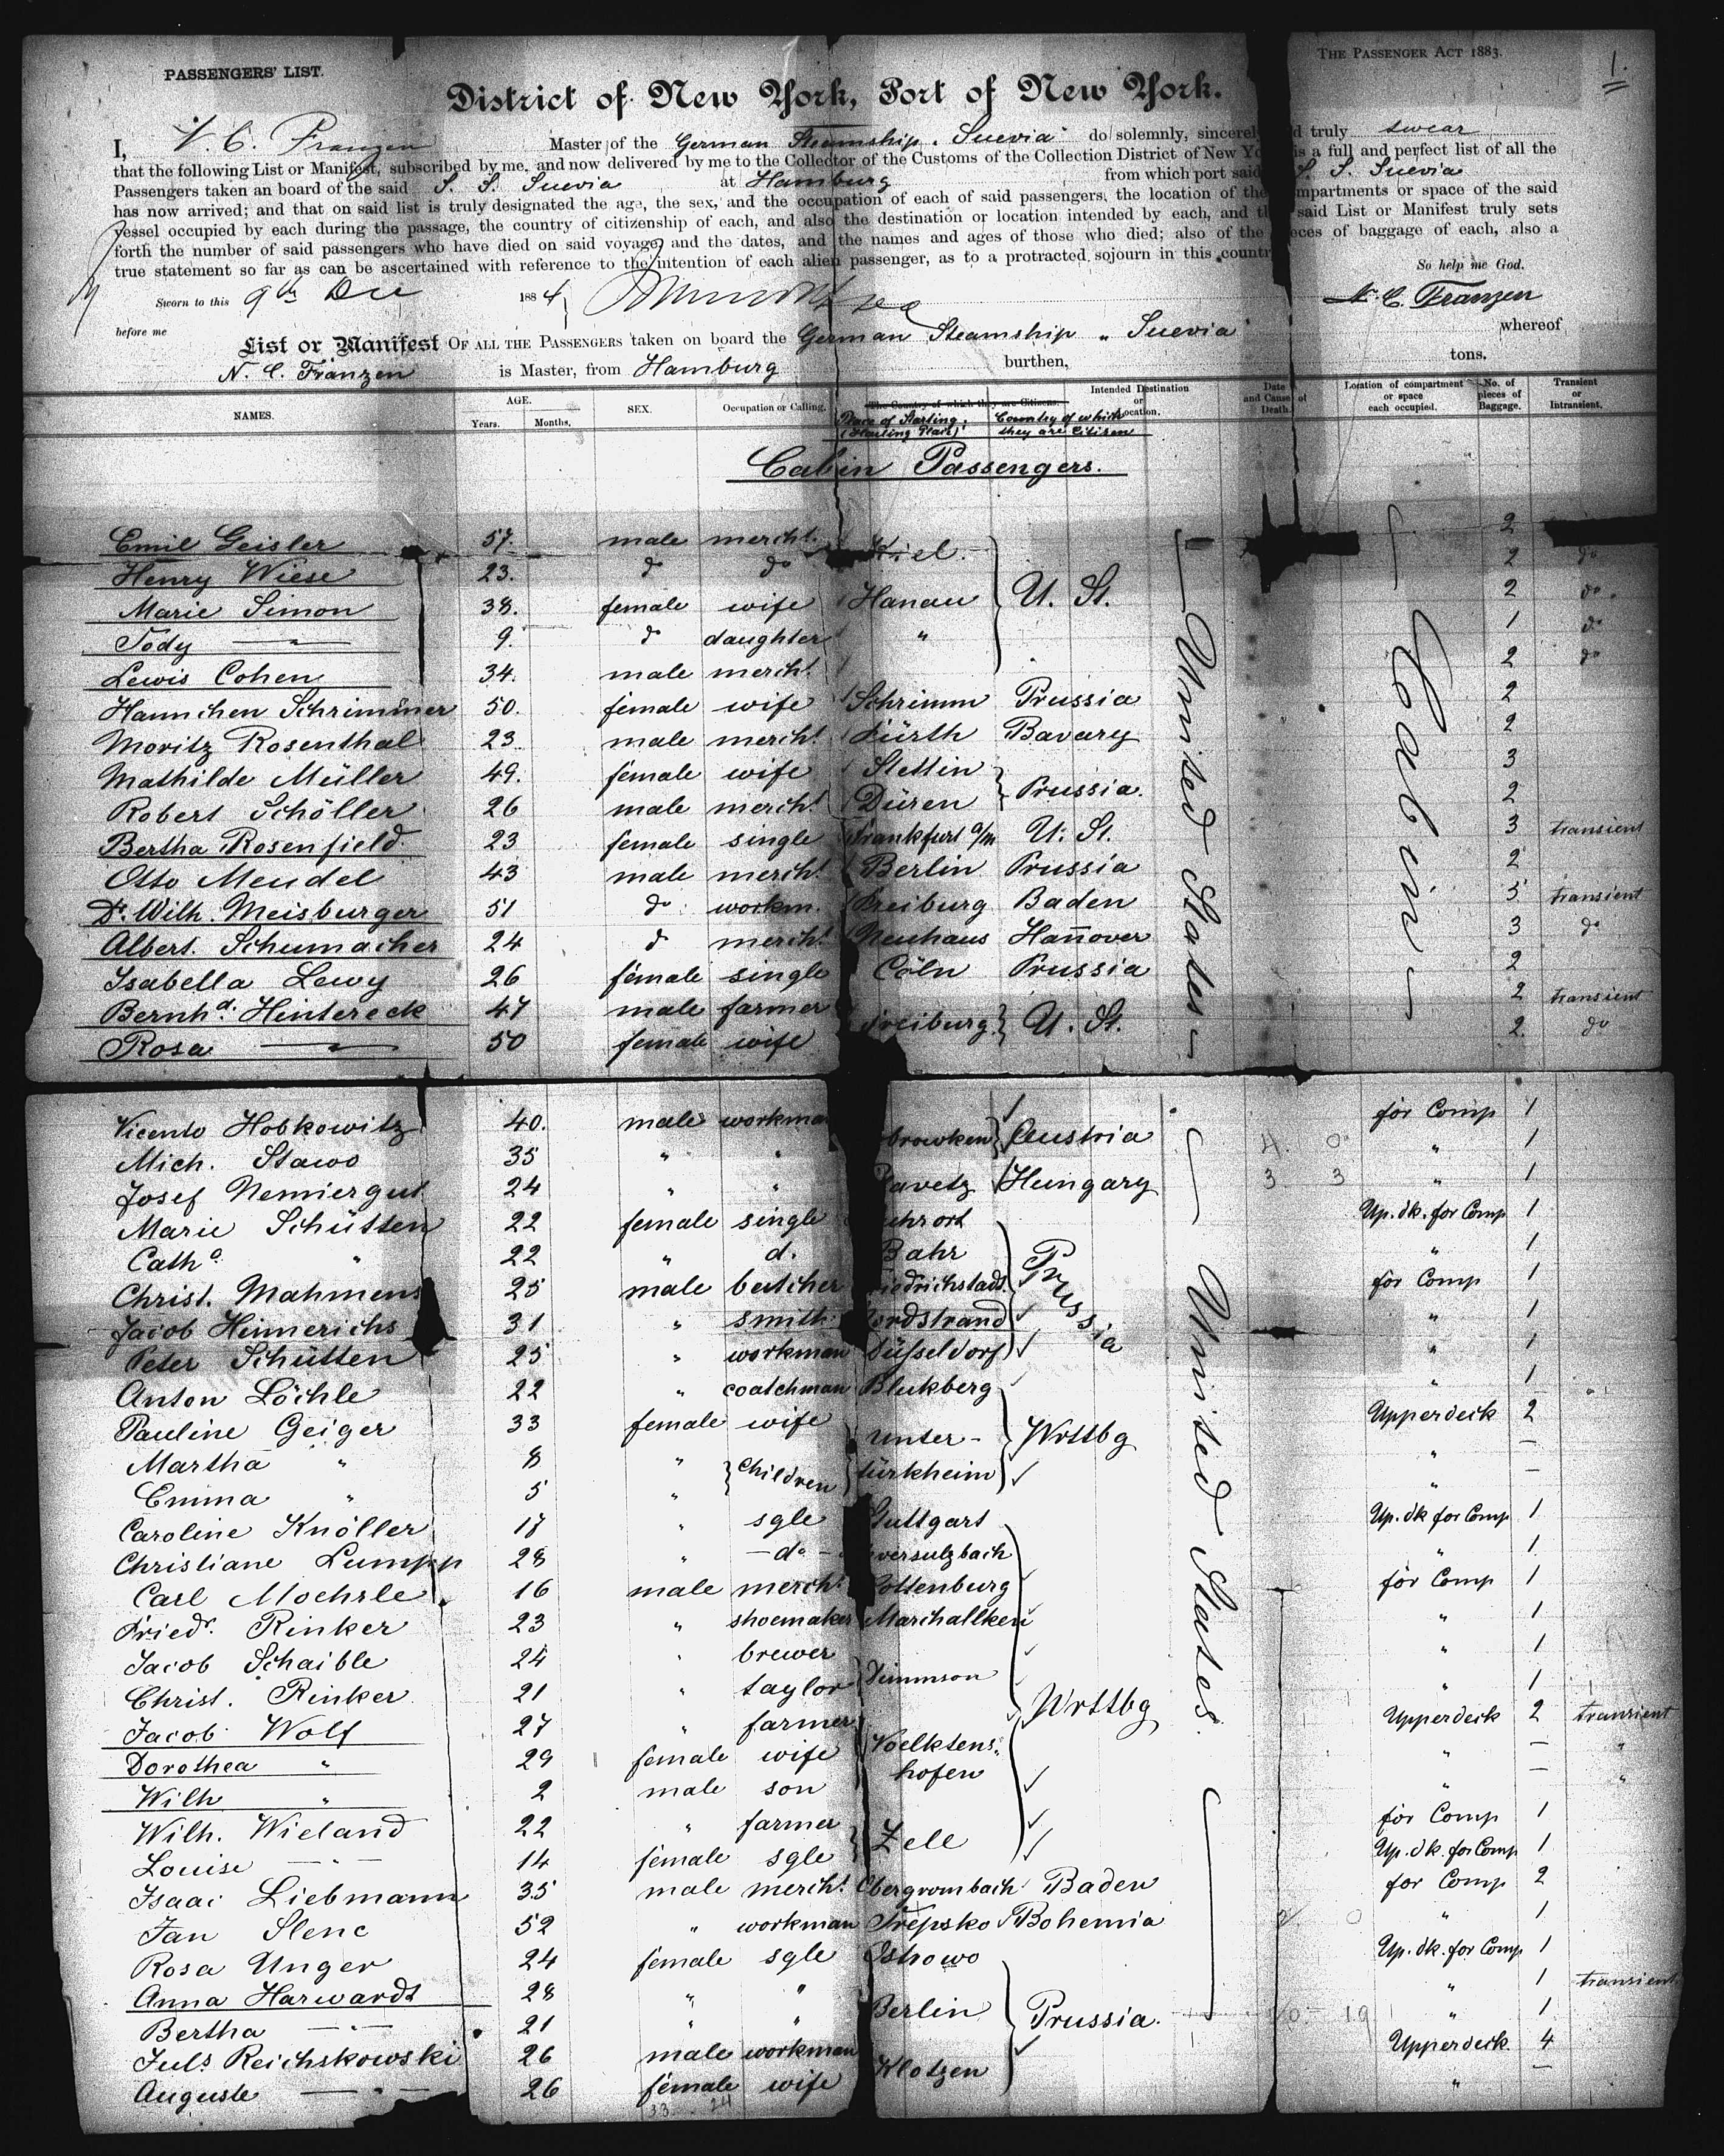 PASSENGERS' LIST.
THE PASSENGER ACT 1883.
1.
District of New York, Port of New York.
I, N. C. Franzen Master of the German Steamship "Suevia" do solemnly, sincerely and truly swear
that the following List or Manifest, subscribed by me, and now delivered by me to the Collector of the Customs of the Collection District of New York is a full and perfect list of all the
Passengers taken on board of the said S. S. Suevia at Hamburg from which port said S. S. Suevia
has now arrived; and that on said list is truly designated the age, the sex, and the occupation of each of said passengers, the location of the compartments or space of the said
vessel occupied by each during the passage, the country of citizenship of each, and also the destination or location intended by each, and that said List or Manifest truly sets
forth the number of said passengers who have died on said voyage, and the dates, and the names and ages of those who died; also of the pieces of baggage of each, also a
true statement so far as can be ascertained with reference to the intention of each alien passenger, as to a protracted sojourn in this country.
So help me God.
Sworn to this 9th Dec 1884
N. C. Franzen
before me
List or Manifest OF ALL THE PASSENGERS taken on board the German Steamship "Suevia" whereof
N. C. Franzen is Master, from Hamburg burthen, tons.
NAMES. AGE. Years. Months. SEX. Occupation or Calling. The Country of which they are Citizens. Place of Starting (Starting Place) Country of which they are Citizen Intended Destination or Location. Date and Cause of Death. Location of compartment or space each occupied. No. of pieces of Baggage. Transient or Intransient.
Cabin Passengers.
Emil Geisler 57. male mercht. Kiel. 2
Henry Wiese 23. do do 2 do
Marie Simon 38. female wife Hanau U. St. 2 do.
Tody — " — 9. do daughter " 1 do
Lewis Cohen 34. male mercht. 2 do
Hannchen Schrimmer 50. female wife Schrimm Prussia 2
Moritz Rosenthal 23 male mercht. Fürth Bavary 2
Mathilde Müller 49. female wife Stettin 3
Robert Schöller 26 male mercht. Düren Prussia. 2
Bertha Rosenfield 23 female single Frankfurt a/m U. St. 3 transient
Otto Mendel 43 male mercht. Berlin Prussia 2
Dr. Wilh. Meisburger 51 do workm. Freiburg Baden 5 transient
Albert Schumacher 24 do mercht. Neuhaus Hannover 3 do
Isabella Lewy 26 female single Cöln Prussia 2
Bernhd. Hintereck 47 male farmer 2 transient
Rosa — " — 50 female wife Freiburg U. St. 2. do
United States
Cabin
Vicento Hobkowitz 40. male workman for Comp 1
Mich. Stawo 35 " " Austria " 1
Josef Nemiergut 24 " " Hungary " 1
Marie Schütten 22 female single Ruhrort Up. dk. for Comp 1
Catha. " 22 " d. Bahr " 1
Christ. Mahmens 25 male butcher Friedrichstadt for Comp 1
Jacob Hinnerichs 31 " smith Nordstrand " 1
Peter Schütten 25 " workman Düsseldorf " 1
Prussia
Anton Löchle 22 " coatchman Blukberg " 1
Pauline Geiger 33 female wife Unter- Wrttbg Upperdeck 2
Martha " 8 " Children türkheim " —
Emma " 5 " " —
Caroline Knöller 17 " sgle Stuttgart Up. dk for Comp 1
Christiane Lumpp 28 " — do — " 1
Carl Moehrle 16 male mercht. Rottenburg for Comp 1
Friedr. Rinker 23 " shoemaker " 1
Jacob Schaible 24 " brewer " 1
Christ. Rinker 21 " taylor " 1
Jacob Wolf 27 " farmer Wrttbg Upperdeck 2 transient
Dorothea " 29 female wife " — "
Wilh " 2 male son hofen " — "
Wilh. Wieland 22 " farmer for Comp 1
Louise — " — 14 female sgle Zell Up. dk. for Comp 1
Isaac Liebmann 35 male mercht. Obergrombach Baden for Comp 2
Jan Slenc 52 " workman Trepsko Bohemia " 1
Rosa Unger 24 female sgle Ostrowo Up. dk. for Comp 1
Anna Harwardt 28 " " " 1 transient
Bertha — " — 21 " " Berlin Prussia. " 1
Juls. Reichskowski 26 male workman Upperdeck. 4
Auguste — " — 26 female wife Klotzen " —
United States